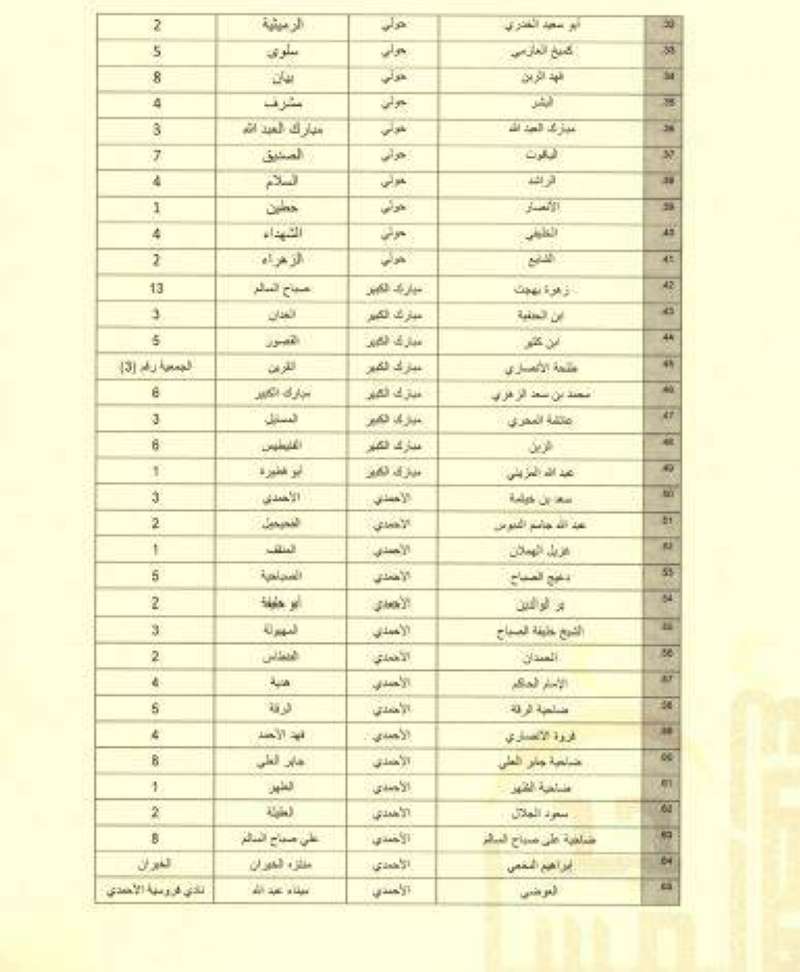 32. أبو سعيد الخدري حولي الرميثية 2
33. حولي سلوى 5
34. فهد الزبن حولي بيان 8
35. البشر حولي مشرف 4
36. مبارك العبد الله حولي مبارك العبد الله 3
37. الياقوت حولي الصديق 7
38. الراشد حولي السلام 4
39. الأنصار حولي حطين 1
40. الخليفي حولي الشهداء 4
41. الشايع حولي الزهراء 2
42. زهرة بهجت مبارك الكبير صباح السالم 13
43. ابن الحنفية مبارك الكبير العدان 3
44. ابن كثير مبارك الكبير القصور 5
45. طلحة الأنصاري مبارك الكبير القرين الجمعية رقم (3)
46. محمد بن سعد الزهري مبارك الكبير مبارك الكبير 6
47. عائشة المحري مبارك الكبير المسايل 3
48. الزبن مبارك الكبير الفنيطيس 6
49. عبد الله المزيني مبارك الكبير أبو فطيرة 1
50. سعد بن خيثمة الأحمدي الأحمدي 3
51. عبد الله جاسم الدبوس الأحمدي الفحيحيل 2
52. هزيل الهملان الأحمدي المنقف 1
53. دعيج الصباح الأحمدي الصباحية 5
54. بر الوالدين الأحمدي أبو حليفة 2
55. الشيخ خليفة الصباح الأحمدي المهبولة 3
56. الحمدان الأحمدي الفنطاس 2
57. الإمام الحاكم الأحمدي هدية 4
58. ضاحية الرقة الأحمدي الرقة 5
59. فروة الانصاري الأحمدي فهد الأحمد 4
60. ضاحية جابر العلي الأحمدي جابر العلي 8
61. ضاحية الظهر الأحمدي الظهر 1
62. سعود الجلال الأحمدي العقيلة 2
63. ضاحية علي صباح السالم الأحمدي علي صباح السالم 8
64. إبراهيم النخعي الأحمدي منتزه الخيران الخيران
65. العوضي الأحمدي ميناء عبد الله نادي فروسية الأحمدي